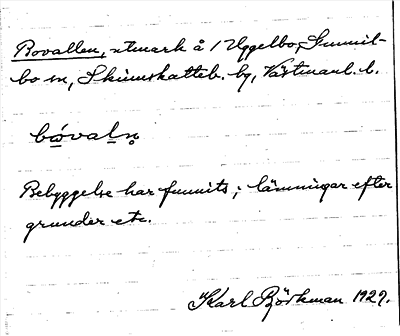 Bovallen, utmark å 1 Uggelbo, Gunnil-
bo sn, Skinnskatteb. bg, Västmanl. l.
bóvaln̥
Bebyggelse har funnits; lämningar efter
grunder etc.
Karl Björkman 1927.